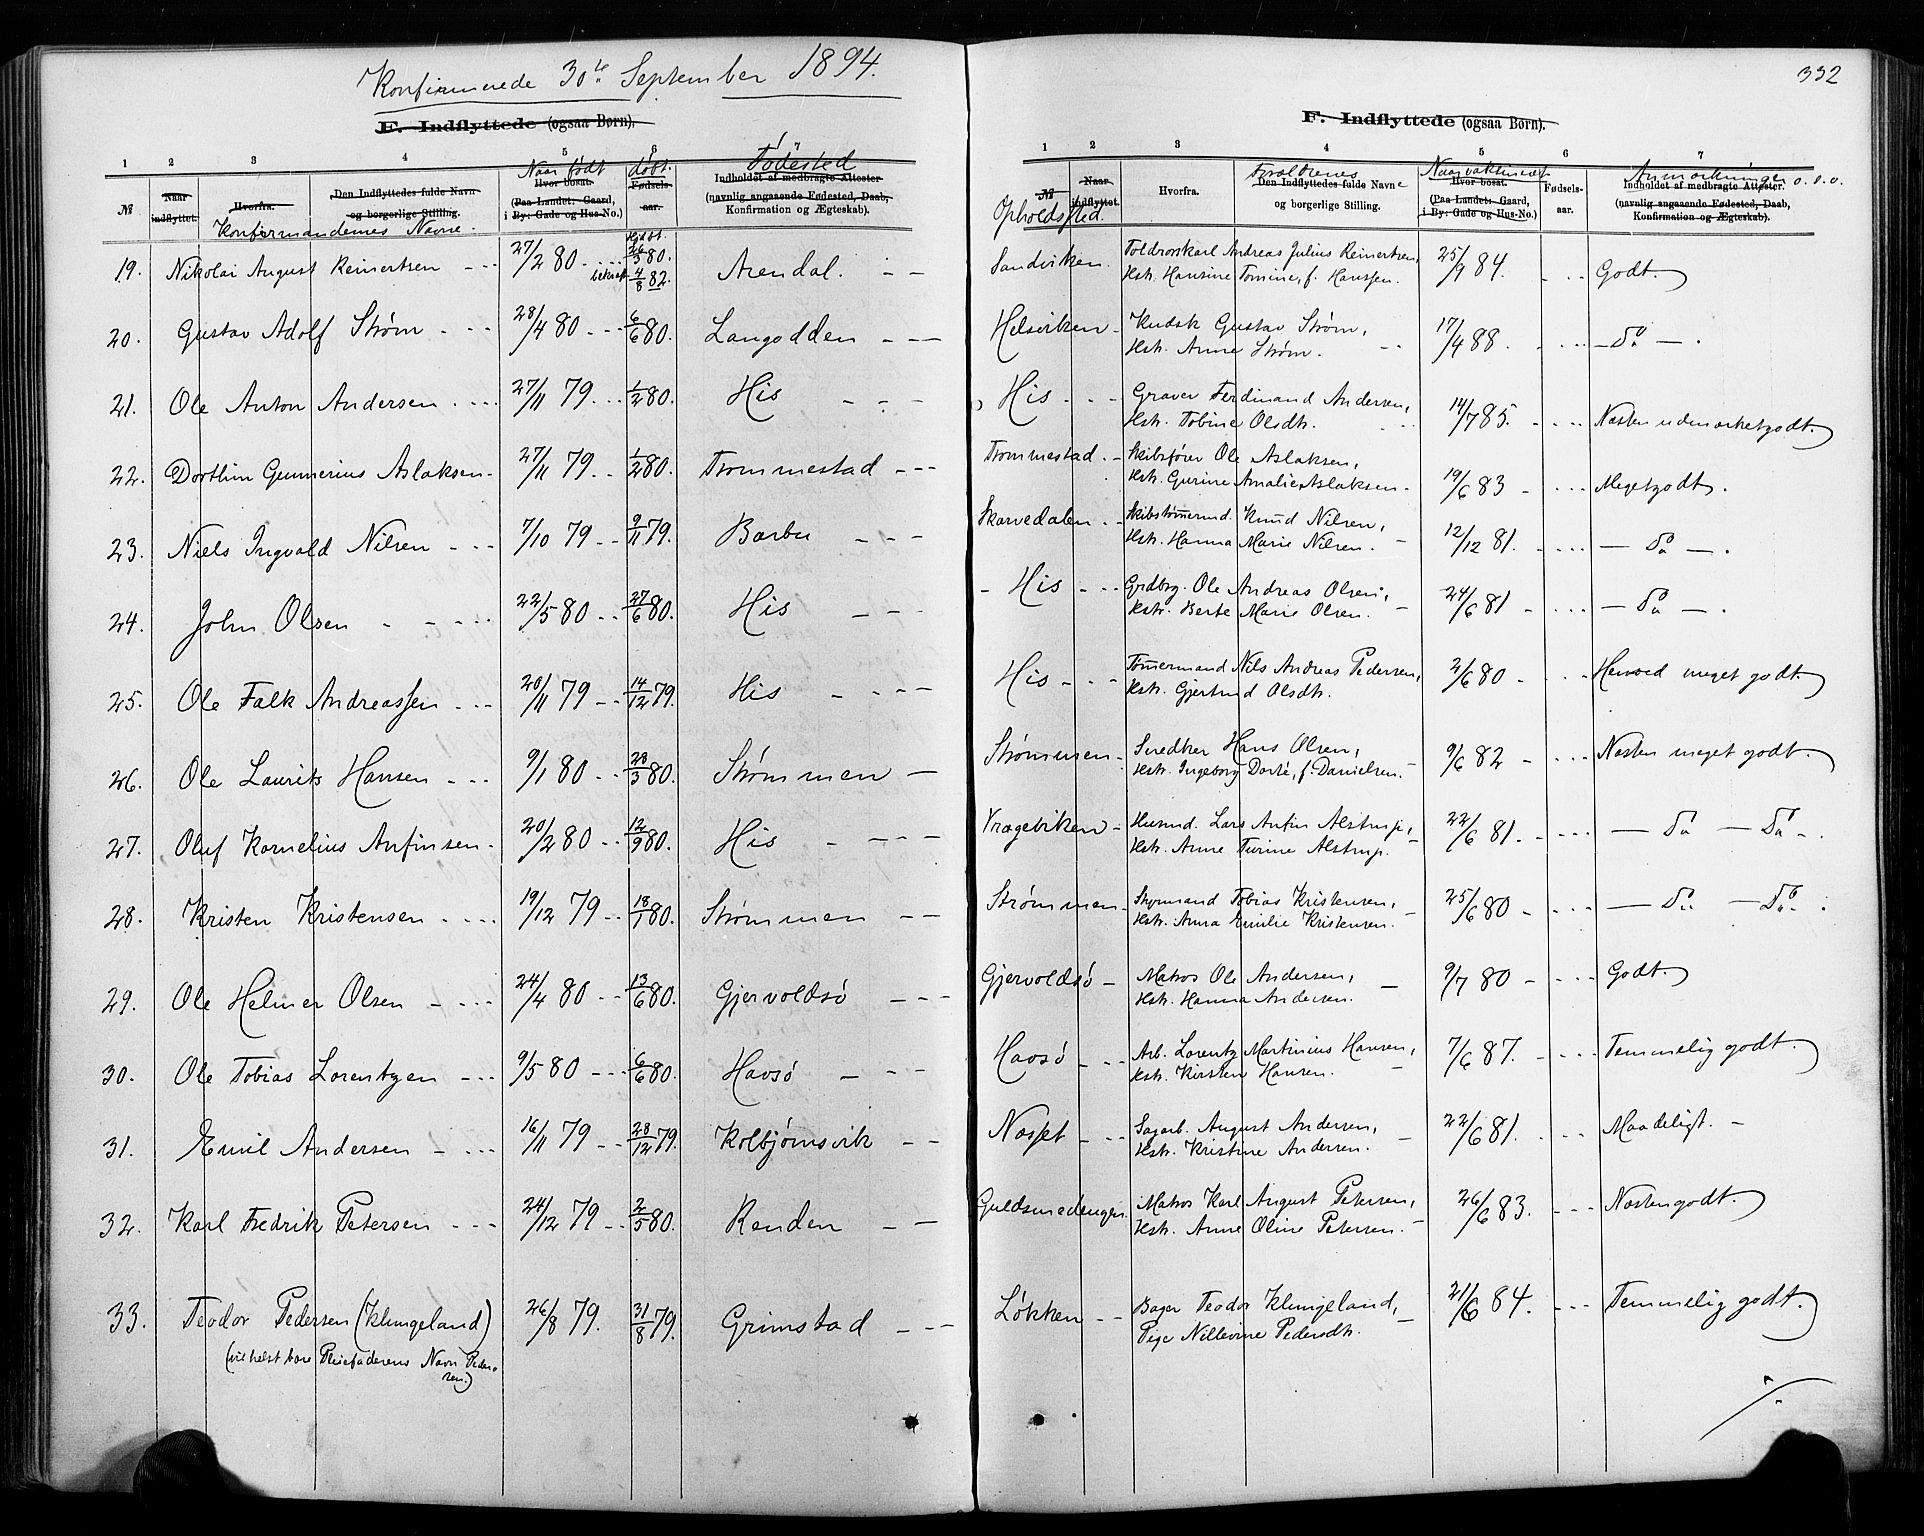 Konfirmerede 30te September 1894.
F. Indflyttede (ogsaa Børn).
1 2 3 4 5 6
Naar født døbt. Fødested
№ Naar indflyttet. Hvorfra. Den Indflyttedes fulde Navn og borgerlige Stilling. Hvor bosat. (Paa Landet: Gaard, i By: Gade og Hus-No.) Fødsels-aar. Indholdet af medbragte Attester (navnlig angaaende Fødested, Daab, Konfirmation og Ægteskab).
Konfirmandernes Navne.
19. Nikolai August Reinertsen 27/2 80 Hjdbt. 26/5 80. bekræf. 4/8 82. Arendal.
20. Gustav Adolf Strøm 28/4 80 6/6 80. Langodden
21. Ole Anton Andersen 27/11 79 1/2 80. His
22. Dorthin Gunnerius Aslaksen 27/11 79 1/2 80. Trommestad
23. Niels Ingvald Nilsen 7/10 79 9/11 79. Barbu
24. John Olsen 22/5 80 27/6 80. His
25. Ole Falk Andreassen 20/11 79 14/12 79. His
26. Ole Laurits Hansen 9/1 80 28/3 80. Strømmen
27. Oluf Kornelius Anfinsen 20/2 80 12/9 80. His
28. Kristen Kristensen 19/12 79 18/1 80. Strømmen
29. Ole Helmer Olsen 24/4 80 13/6 80. Gjervoldsø
30. Ole Tobias Lorentzen 9/5 80 6/6 80. Havsø
31. Emil Andersen 16/11 79 28/12 79. Kolbjørnsvik
32. Karl Fredrik Petersen 24/12 79 2/5 80. Randen
33. Teodor Pedersen (Klingeland) 26/8 79. 31/8 79. Grimstad
(vil helst bære Pleiefaderens Navn Pedersen.)
332
F. Indflyttede (ogsaa Børn).
1 2 3 4 5 6 7
Forældrenes Naar vaktineret Anmærkninger o.s.v.
№ Naar indflyttet. Hvorfra. Den Indflyttedes fulde Navne og borgerlige Stilling. Hvor bosat. (Paa Landet: Gaard, i By: Gade og Hus-No.) Fødsels-aar. Indholdet af medbragte Attester. (navnlig angaaende Fødested, Daab, Konfirmation og Ægteskab).
Opholdssted.
Sandviken. Toldroerskarl Andreas Julius Reinertsen, 25/9 84. Godt.
Hstr. Hansine Tomine, f. Hanssen.
Helsviken Kudsk Gustav Strøm, 17/4 88. do
Hstr. Anne Strøm.
His Graver Ferdinand Andersen, 14/7 85. Næsten udmærketgodt.
Hstr. Tobine Olsdtr.
Trommestad Skibsfører Ole Aslaksen, 19/6 83 Megetgodt.
Hstr. Gurine Amalie Aslaksen.
Skarvedalen Skibstømmermd. Knud Nilsen, 12/12 81. do
Hstr. Hanna Marie Nilsen.
His Grdbrg. Ole Andreas Olsen, 24/6 81 do
Hstr. Berte Marie Olsen.
His Tømmermand Nils Andreas Pedersen, 2/6 80 Henved meget godt.
Hstr. Gjertrud Olsdtr.
Strømmen Snedker Hans Olsen, 9/6 82 Næsten meget godt.
Hstr. Ingeborg Dorte, f. Danielsen.
Vragebiken Husmd. Lars Anfin Alstrup, 22/6 81. do do
Hstr. Anne Turine Alstrup.
Strømmen Styrmand Tobias Kristensen, 25/6 80 do do
Hstr. Anna Emilie Kristensen.
Gjervoldsø Matros Ole Andersen, 9/7 80 Godt
Hstr. Hanna Andersen.
Havsø Arb. Lorentz Martinius Hansen, 7/6 87. Temmelig godt.
Hstr. Kirsten Hansen.
Næsset Sagarb. August Andersen, 22/6 81. Maadeligt.
Hstr. Kristine Andersen.
Guldsmedengen Matros Karl August Petersen, 26/6 83. Næstengodt.
Hstr. Anne Oline Petersen.
Løkken Bager Teodor Klingeland, 21/6 84. Temmelig godt.
Pige Nillevine Pedersdtr.